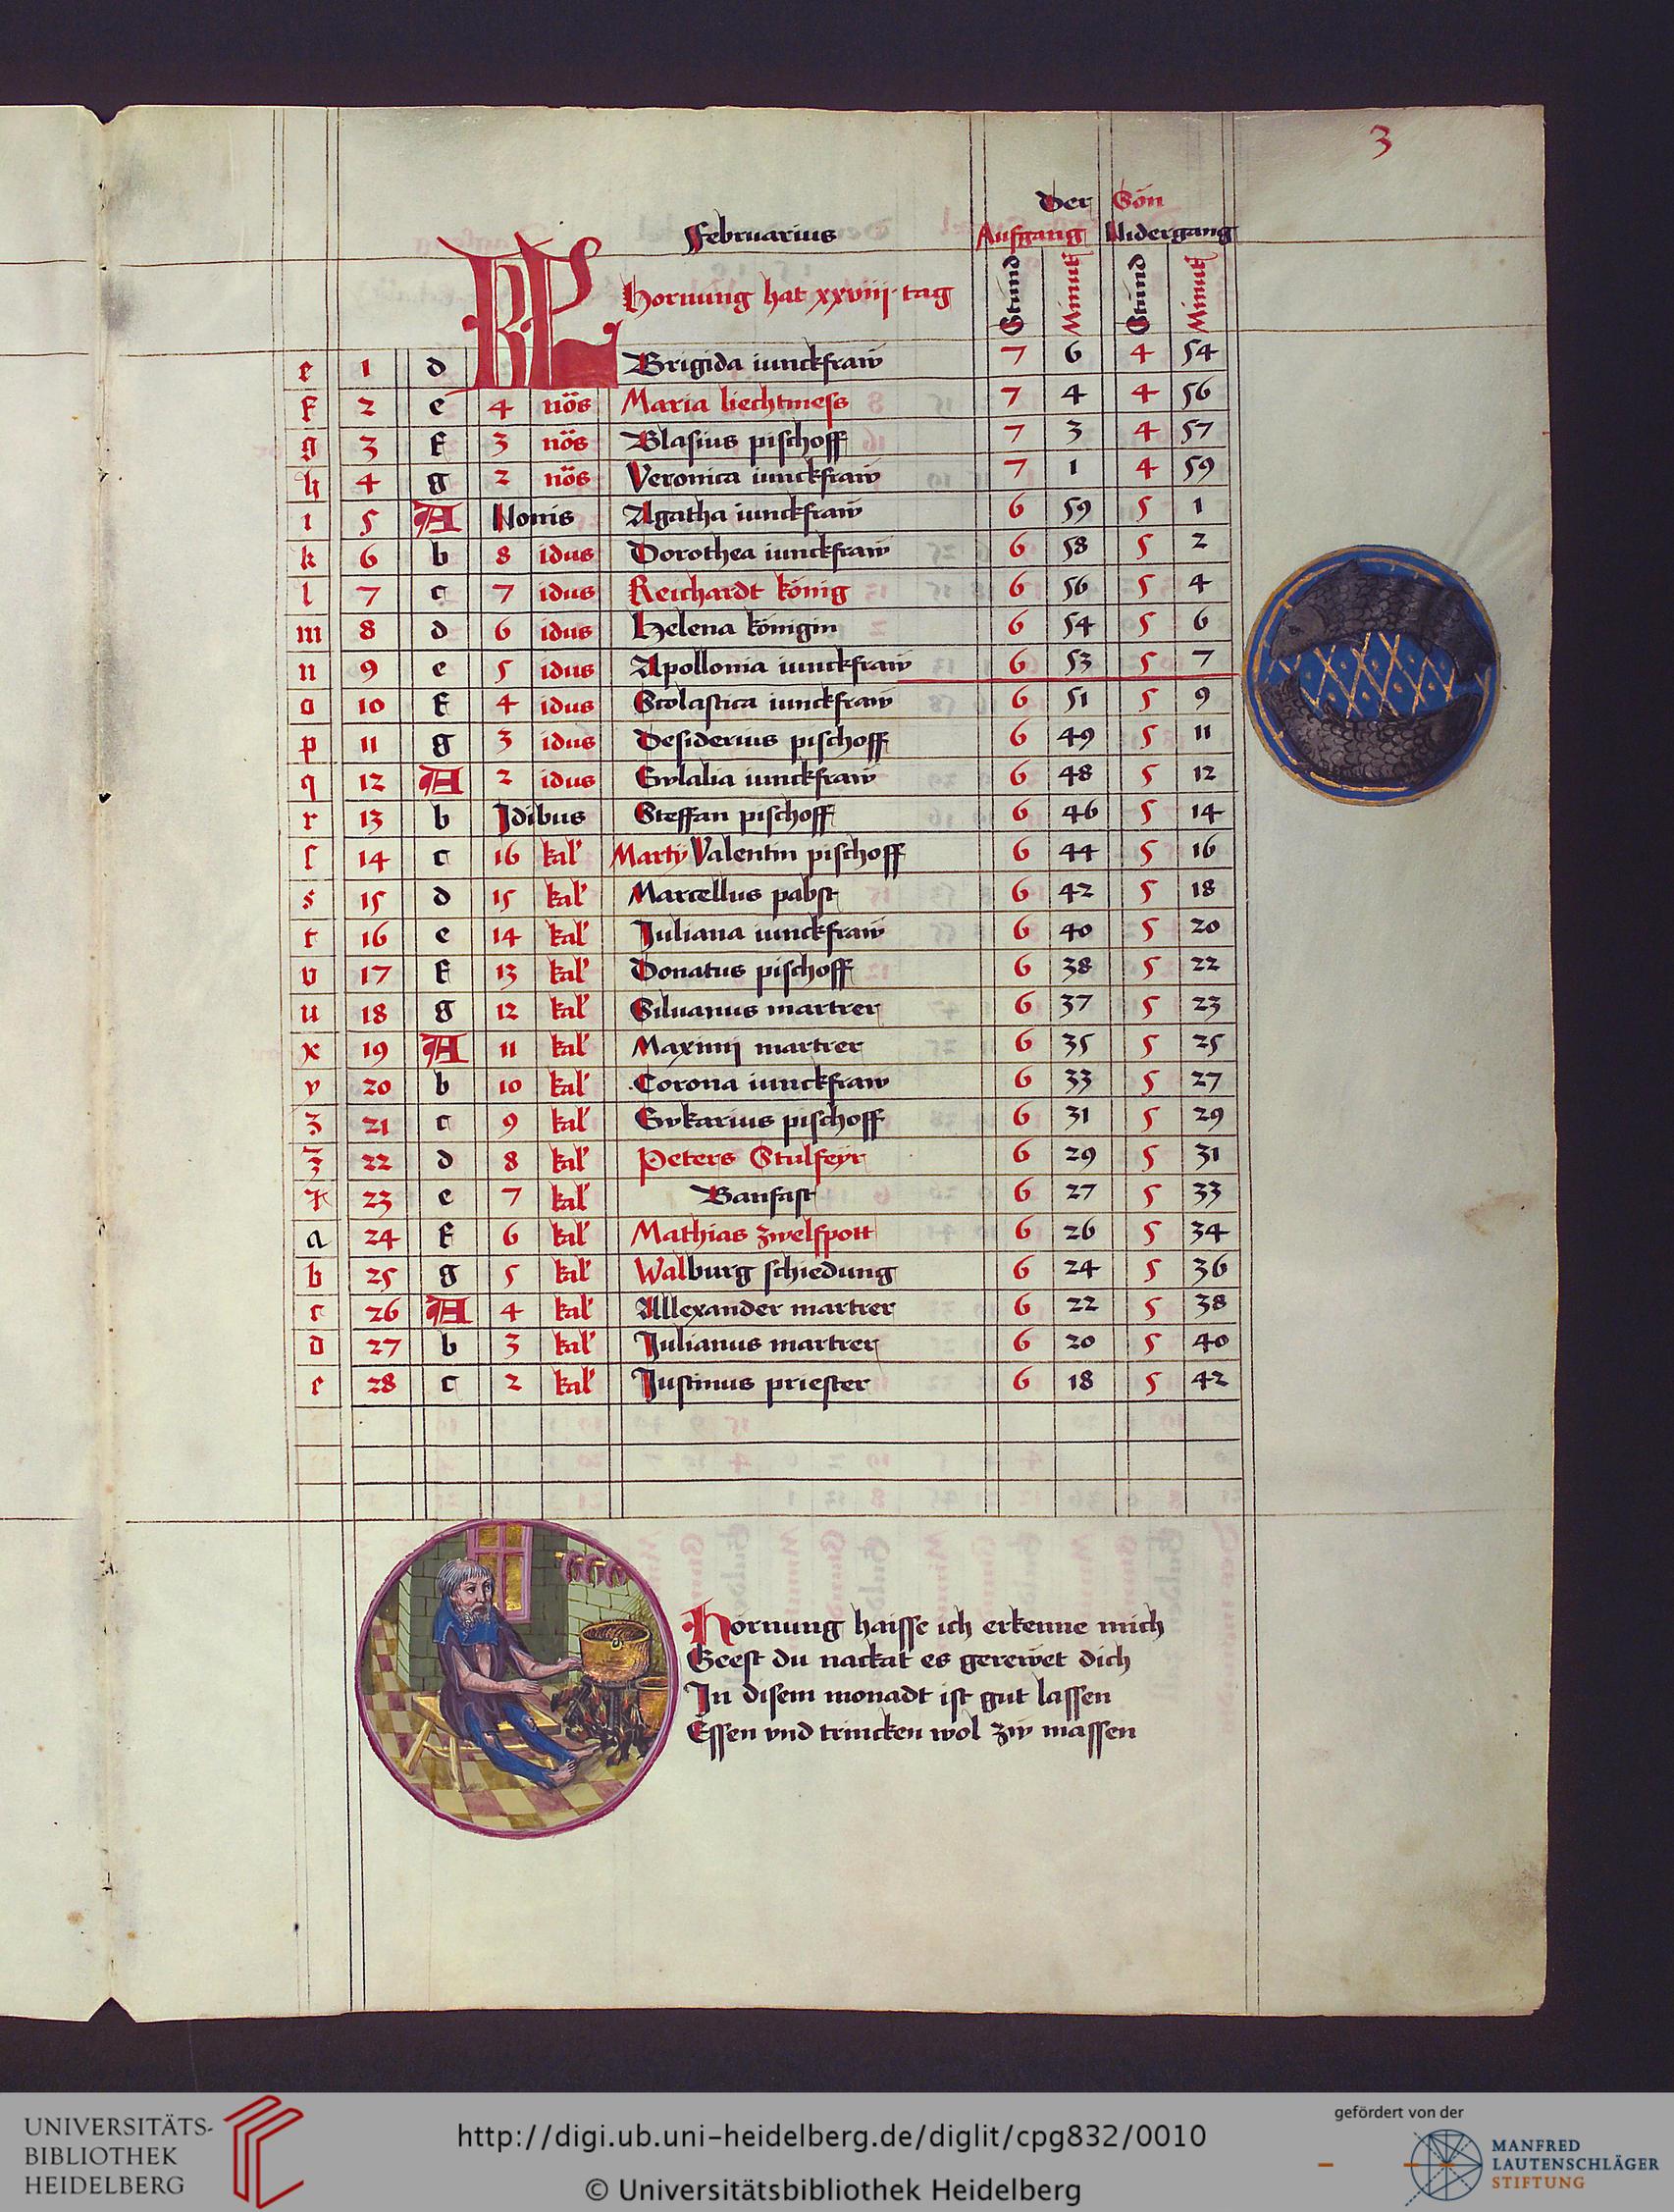 3
Der Sön
Februarius Aufgang Nidergang
KL Hornung hat xxviij tag Stund Minut Stund Minut
e 1 d Brigida iunckfraw 7 6 4 54
f 2 e 4 nös Maria liechtmess 7 4 4 56
g 3 f 3 nös Blasius pischoff 7 3 4 57
h 4 g 2 nös Veronica iunckfraw 7 1 4 59
i 5 A Nonis Agatha iunckfraw 6 59 5 1
k 6 b 8 idus Dorothea iunckfraw 6 58 5 2
l 7 c 7 idus Reichardt König 6 56 5 4
m 8 d 6 idus Helena Königin 6 54 5 6
n 9 e 5 idus Apollonia iunckfraw 6 53 5 7
o 10 f 4 idus Scolastica iunckfraw 6 51 5 9
p 11 g 3 idus Desiderius pischoff 6 49 5 11
q 12 A 2 idus Ewlalia iunckfraw 6 48 5 12
r 13 b Idibus Steffan pischoff 6 46 5 14
ſ 14 c 16 kal' Martÿ Valentin pischoff 6 44 5 16
s 15 d 15 kal' Marcellus pabst 6 42 5 18
t 16 e 14 kal' Juliana iunckfraw 6 40 5 20
v 17 f 13 kal' Donatus pischoff 6 38 5 22
u 18 g 12 kal' Siluanus martrer 6 37 5 23
x 19 A 11 kal' Maximi martrer 6 35 5 25
y 20 b 10 kal' Corona iunckfraw 6 33 5 27
z 21 c 9 kal' Evkarius pischoff 6 31 5 29
z 22 d 8 kal' Peters Stulfeyr 6 29 5 31
23 e 7 kal' Banfast 6 27 5 33
a 24 f 6 kal' Mathias zwelfpott 6 26 5 34
b 25 g 5 kal' Walburg schiedung 6 24 5 36
c 26 A 4 kal' Allexander martrer 6 22 5 38
d 27 b 3 kal' Julianus martrer 6 20 5 40
e 28 c 2 kal' Justinus priester 6 18 5 42
Hornung haisse ich erkenne mich
Geest du nackat es gerewet dich
In disem monadt ist gut lassen
Essen vnd trincken wol zw massen
UNIVERSITÄTS-
BIBLIOTHEK
HEIDELBERG
http://digi.ub.uni-heidelberg.de/diglit/cpg832/0010
© Universitätsbibliothek Heidelberg
gefördert von der
MANFRED
LAUTENSCHLÄGER
STIFTUNG